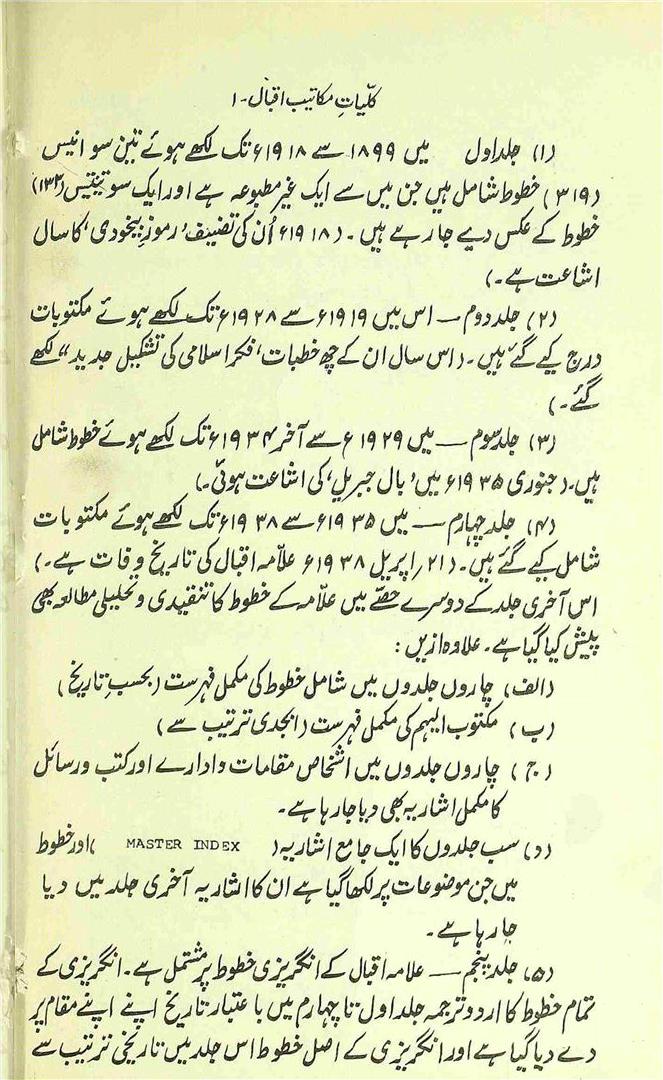 کلّیاتِ مکاتیب اقبال۔۱
(۱) جلد اول میں ۱۸۹۹ سے ۱۹۱۸ء تک لکھے ہوئے تین سو انیس
(۳۱۹) خطوط شامل ہیں جن میں سے ایک غیر مطبوعہ ہے اور ایک سو تینتیس (۱۳۲)
خطوط کے عکس دیے جا رہے ہیں۔ (۱۹۱۸ء اُن کی تصنیف ’رموزِ بیخودی‘ کا سال
اشاعت ہے۔)
(۲) جلد دوم — اس میں ۱۹۱۹ء سے ۱۹۲۸ء تک لکھے ہوئے مکتوبات
درج کیے گئے ہیں۔ (اس سال ان کے چھ خطبات ’فکر اسلامی کی تشکیل جدید“ لکھے
گئے۔)
(۳) جلد سوم — میں ۱۹۲۹ء سے آخر ۱۹۳۴ء تک لکھے ہوئے خطوط شامل
ہیں۔ (جنوری ۱۹۳۵ء میں ’بال جبریل‘ کی اشاعت ہوئی۔)
(۴) جلد چہارم — میں ۱۹۳۵ء سے ۱۹۳۸ء تک لکھے ہوئے مکتوبات
شامل کیے گئے ہیں۔ (۲۱؍ اپریل ۱۹۳۸ء علّامہ اقبال کی تاریخ وفات ہے۔)
اس آخری جلد کے دوسرے حصّے میں علّامہ کے خطوط کا تنقیدی و تحلیلی مطالعہ بھی
پیش کیا گیا ہے۔ علاوہ ازیں:
(الف) چاروں جلدوں میں شامل خطوط کی مکمل فہرست (بحسبِ تاریخ)
(ب) مکتوب الیہم کی مکمل فہرست (ابجدی ترتیب سے)
(ج) چاروں جلدوں میں اشخاص مقامات و ادارے اور کتب و رسائل
کا مکمل اشاریہ بھی دیا جا رہا ہے۔
(د) سب جلدوں کا ایک جامع اشاریہ (MASTER INDEX) اور خطوط
میں جن موضوعات پر لکھا گیا ہے ان کا اشاریہ آخری جلد میں دیا
جا رہا ہے۔
(۵) جلد پنجم — علامہ اقبال کے انگریزی خطوط پر مشتمل ہے۔ انگریزی کے
تمام خطوط کا اردو ترجمہ جلد اول تا چہارم میں با عتبار تاریخ اپنے اپنے مقام پر
دے دیا گیا ہے اور انگریزی کے اصل خطوط اس جلد میں تاریخی ترتیب سے